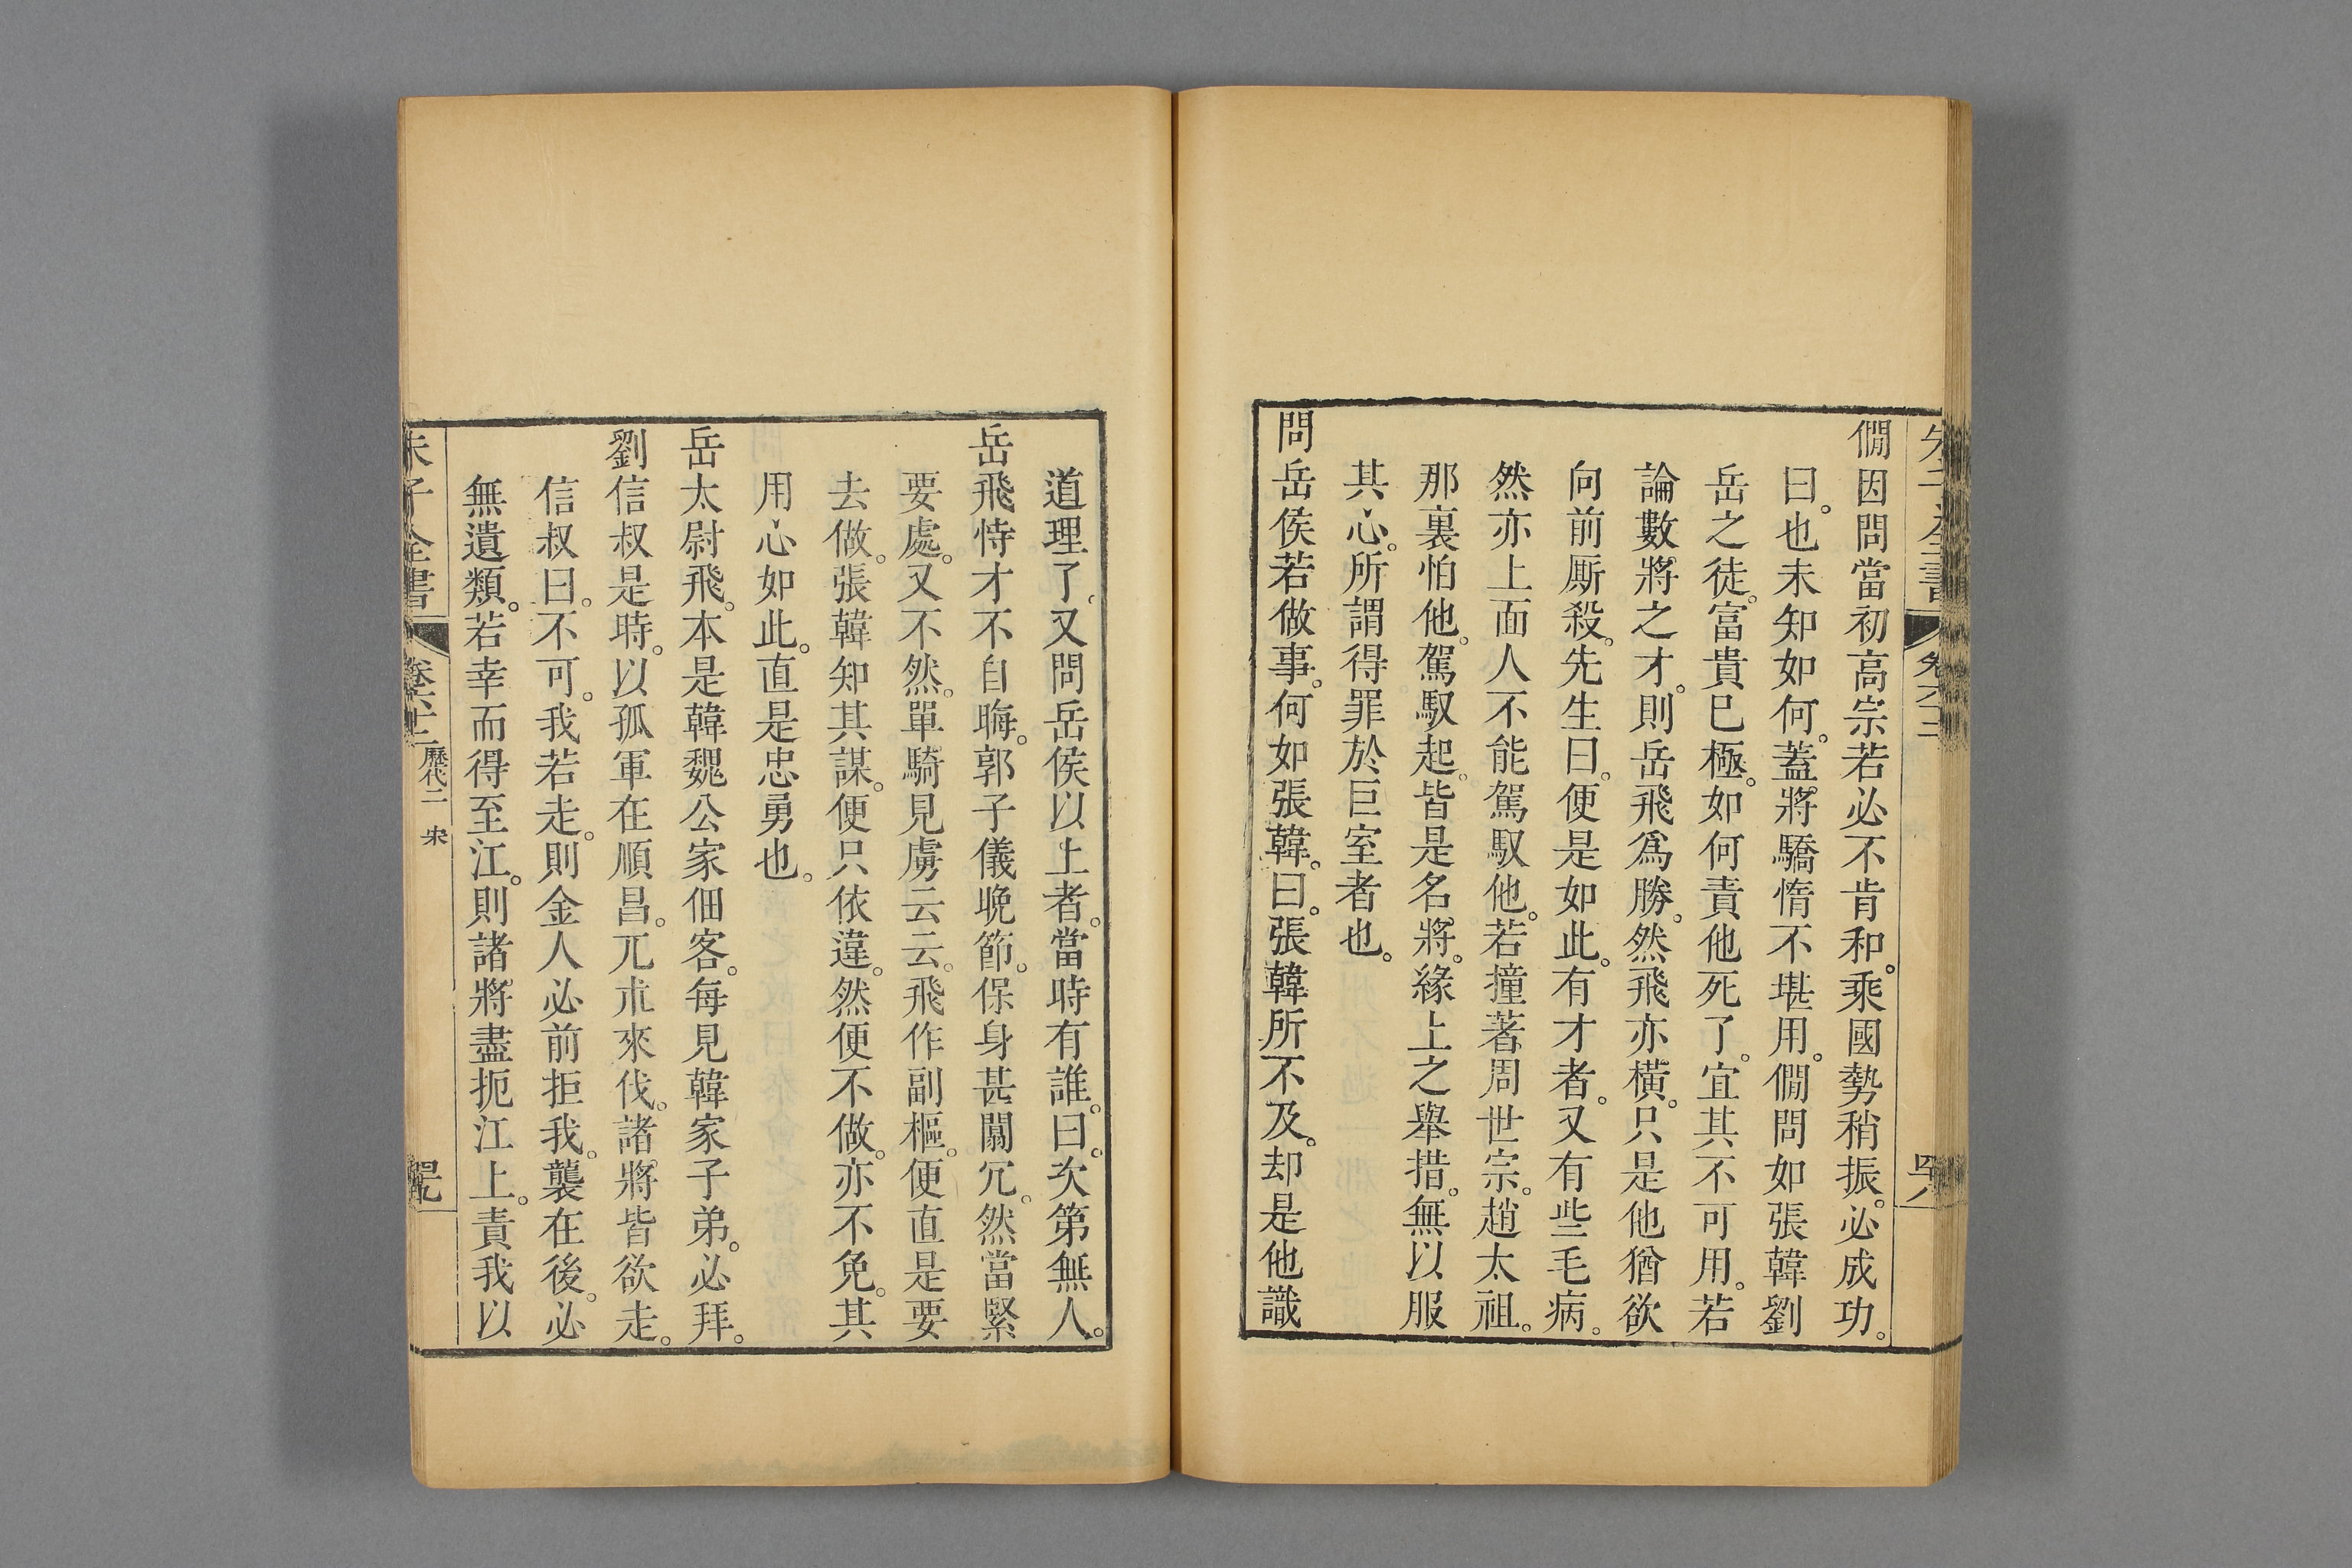 僩因問當初高宗若必不肯和。乘國勢稍振。必成功。
曰。也未知如何。蓋將驕惰不堪用。僩問如張韓劉
岳之徒。富貴已極。如何責他死了。宜其不可用。若
論數將之才。則岳飛爲勝。然飛亦橫。只是他猶欲
向前厮殺。先生曰。便是如此。有才者。又有些毛病。
然亦上面人不能駕馭他。若撞著周世宗。趙太祖。
那裏怕他。駕馭起。皆是名將。緣上之舉措。無以服
其心。所謂得罪於巨室者也。
問岳侯若做事。何如張韓。曰。張韓所不及。却是他識
道理了。又問岳侯以上者。當時有誰。曰。次第無人。
岳飛恃才不自晦。郭子儀晚節。保身甚闒冗。然當緊
要處。又不然。單騎見虜云云。飛作副樞。便直是要
去做。張韓知其謀。便只依違。然便不做。亦不免。其
用心如此。直是忠勇也。
岳太尉飛。本是韓魏公家佃客。每見韓家子弟。必拜。
劉信叔是時。以孤軍在順昌。兀朮來伐。諸將皆欲走。
信叔曰。不可。我若走。則金人必前拒我。襲在後。必
無遺類。若幸而得至江。則諸將盡扼江上。責我以
朱子全書
卷六十二
歷代二 宋